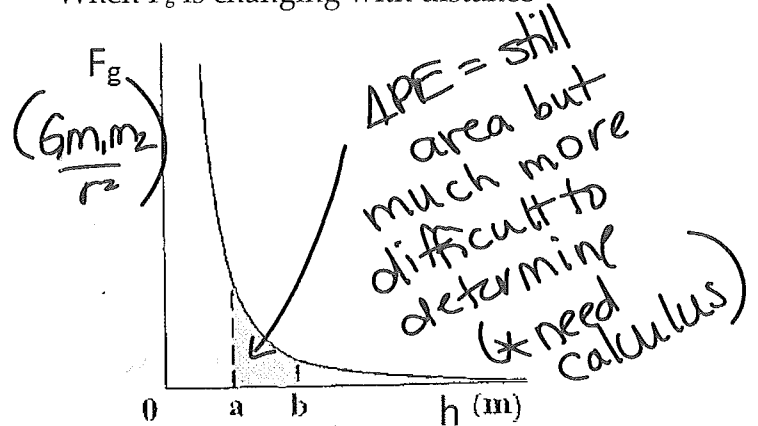 When Fg is changing with distance
Fg
(Gm₁m₂
r²)
ΔPE = still
area but
much more
difficult to
determine
(*need
calculus)
0 a b h (m)